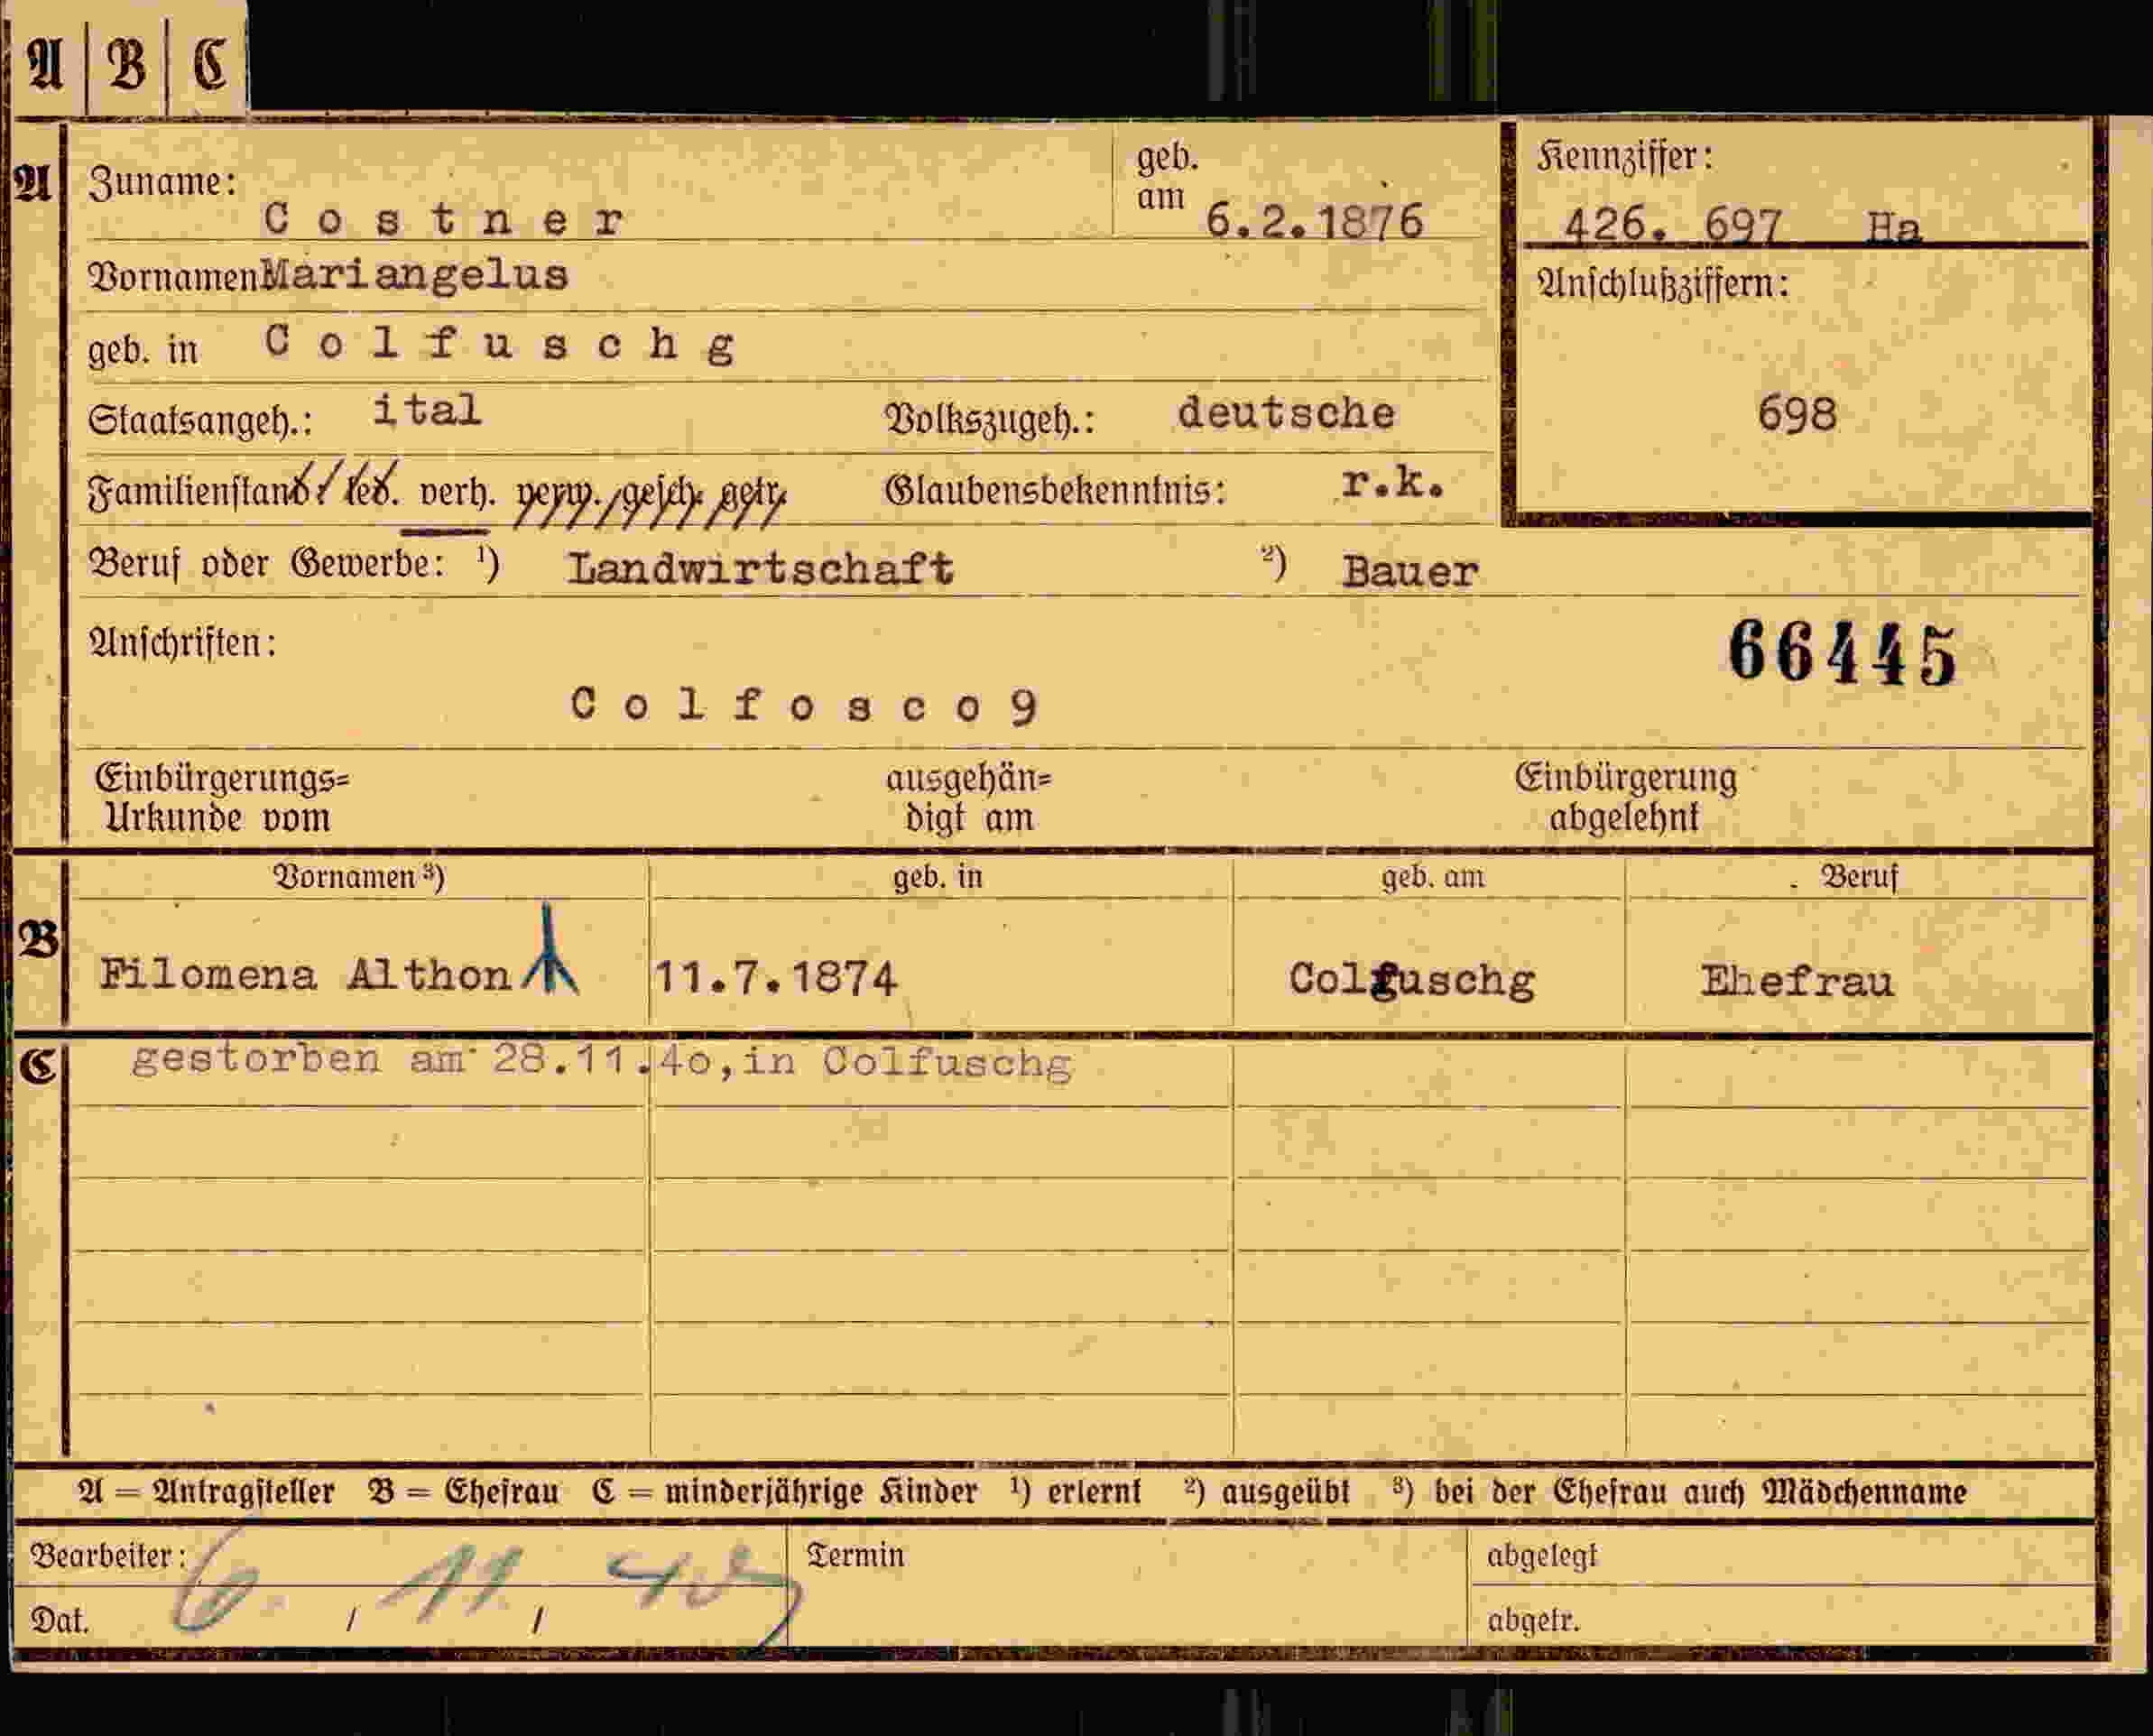 A | B | C
A
Zuname: Costner
geb. am 6.2.1876
Kennziffer:
426. 697 Ha
Vornamen Mariangelus
Anschlußziffern:
698
geb. in Colfuschg
Staatsangeh.: ital Volkszugeh.: deutsche
Familienstand: led. verh. verw. gesch. getr. Glaubensbekenntnis: r.k.
Beruf oder Gewerbe: ¹) Landwirtschaft ²) Bauer
Anschriften:
66445
Colfosco 9
Einbürgerungs=
Urkunde vom
ausgehän=
digt am
Einbürgerung
abgelehnt
B
Vornamen ³) geb. in geb. am Beruf
Filomena Althon 11.7.1874 Colfuschg Ehefrau
C
gestorben am 28.11.4o, in Colfuschg
A = Antragsteller B = Ehefrau C = minderjährige Kinder ¹) erlernt ²) ausgeübt ³) bei der Ehefrau auch Mädchenname
Bearbeiter:
Dat. 6. / 11 /
Termin
abgelegt
abgetr.